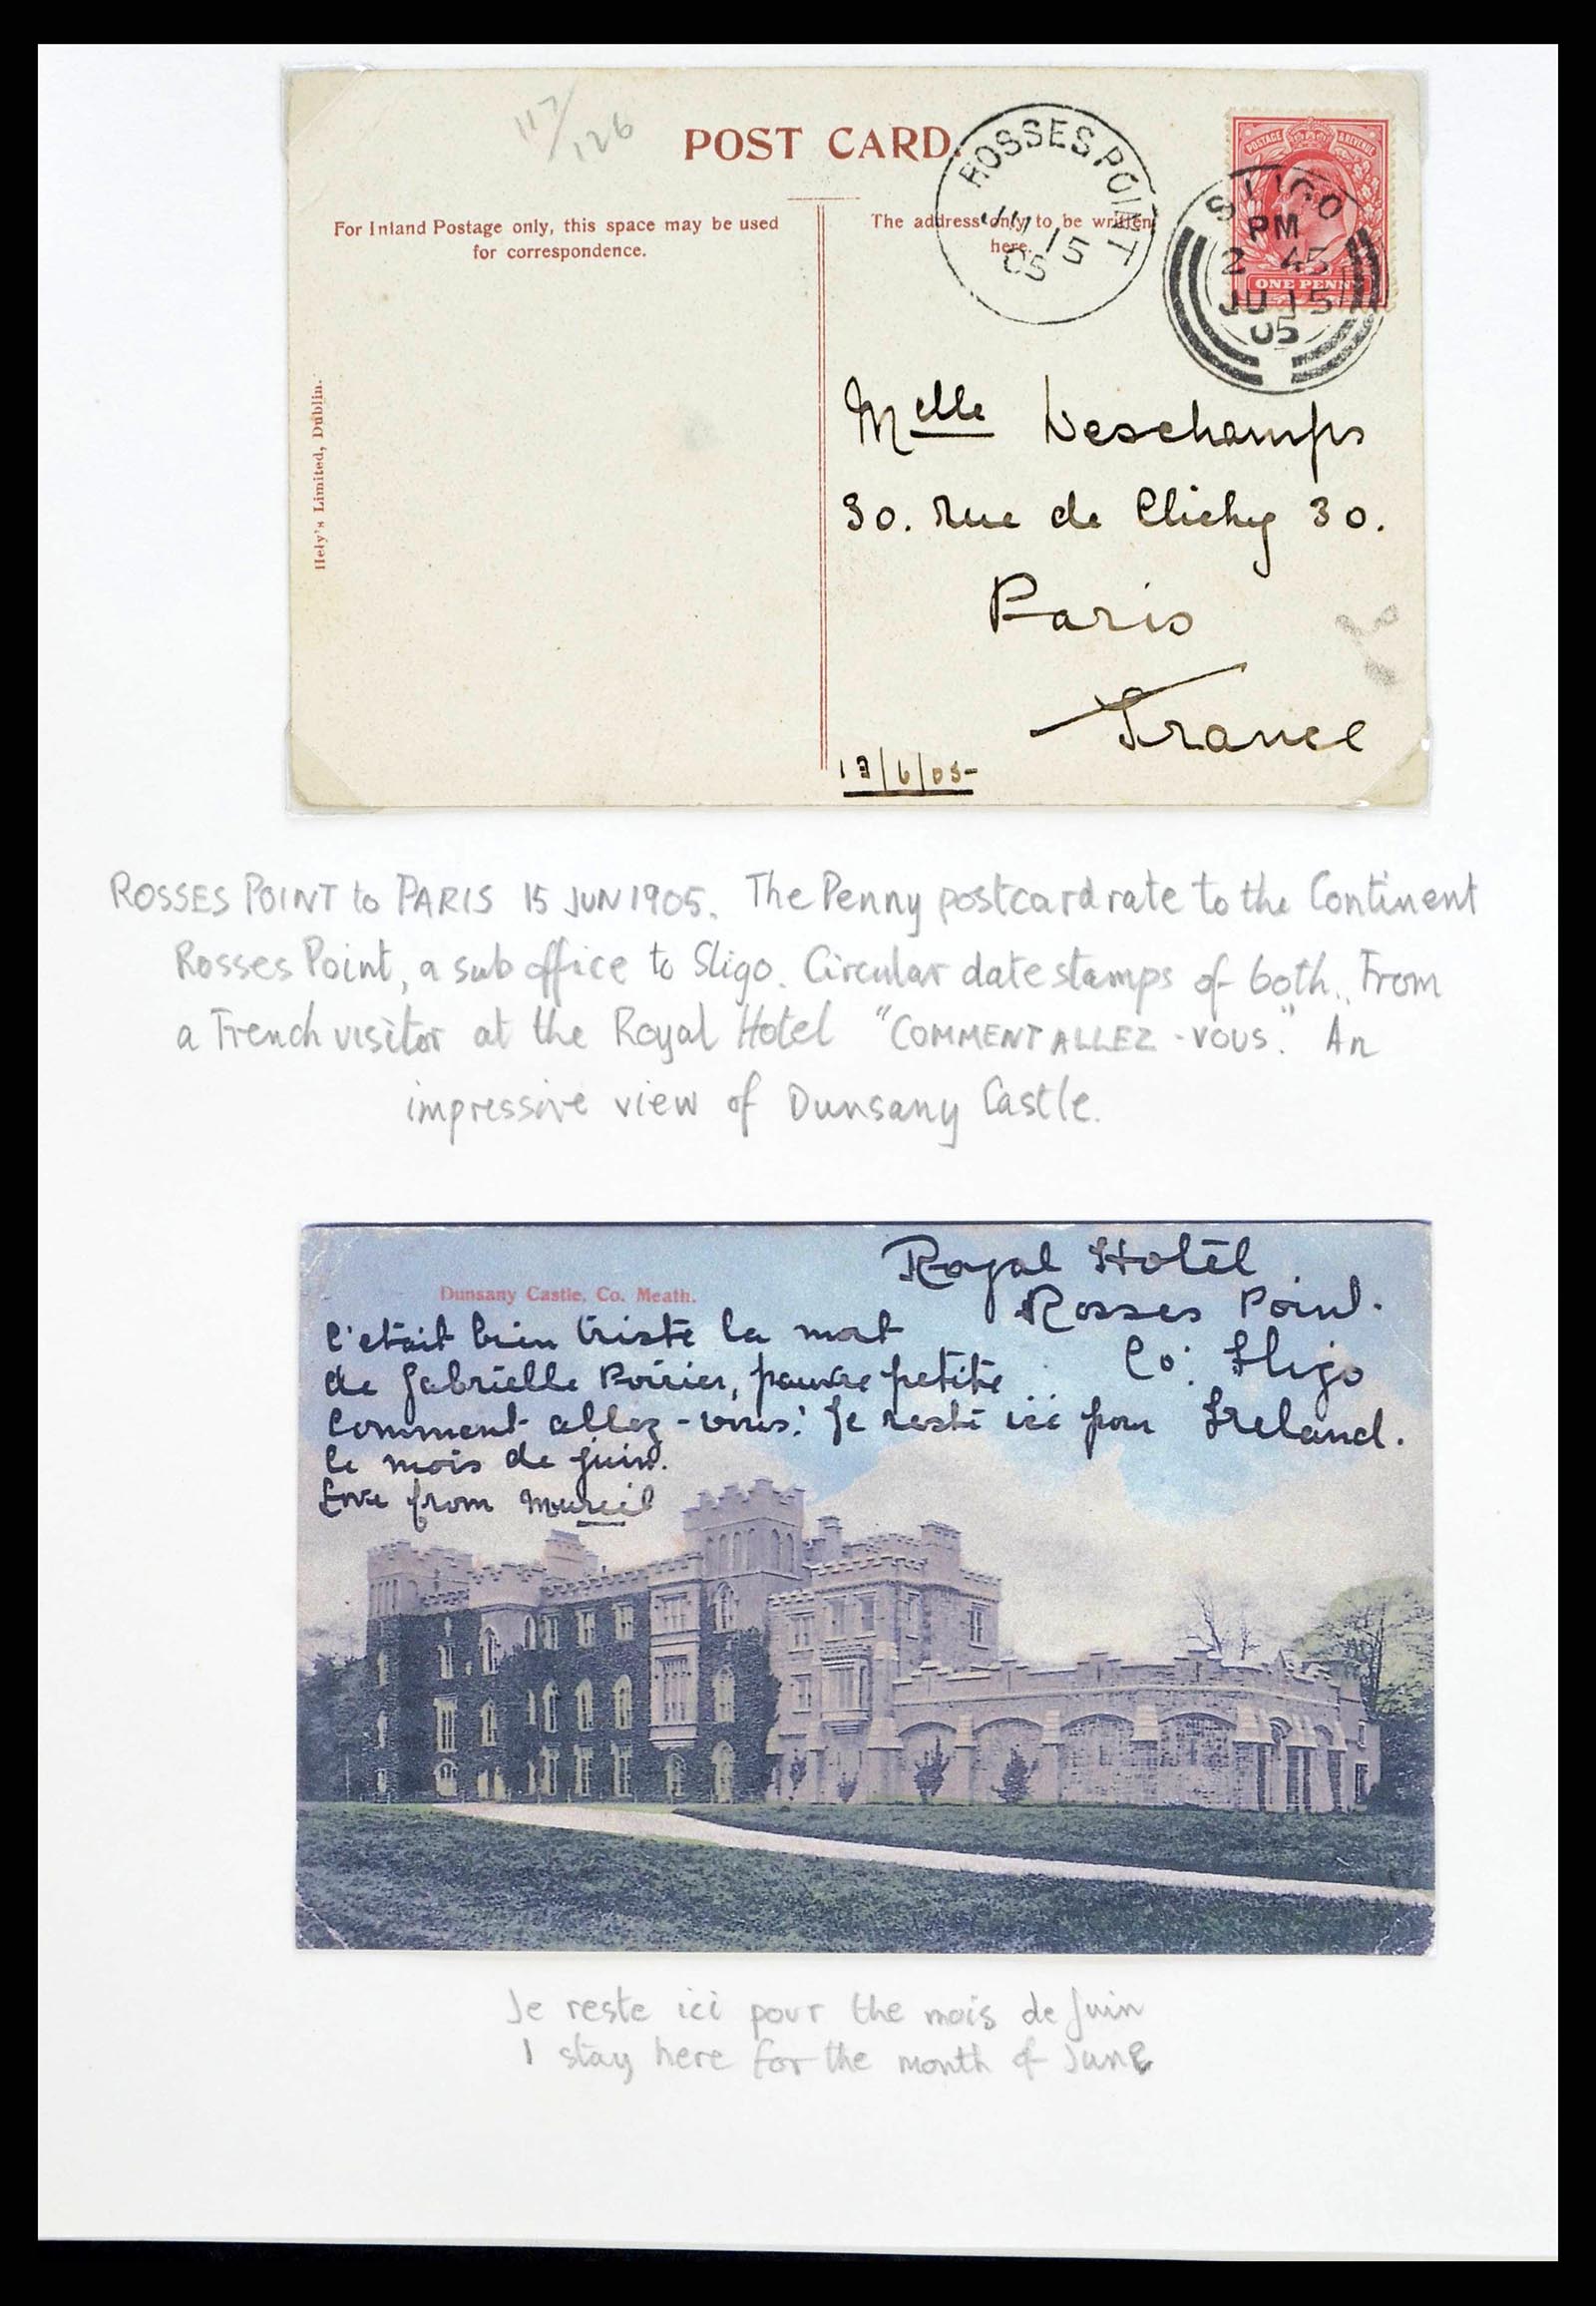 117/126
POST CARD.
ROSSES POINT
JU 15
05
POSTAGE & REVENUE
SLIGO
PM
2 45
JU 15
05
ONE PENNY
For Inland Postage only, this space may be used
for correspondence.
The address only to be written
here.
Hely's Limited, Dublin.
Melle Deschamps
30. rue de Clichy 30.
Paris
France
13/6/05
ROSSES POINT to PARIS 15 JUN 1905. The Penny postcard rate to the Continent
Rosses Point, a sub office to Sligo. Circular date stamps of both.. From
a French visitor at the Royal Hotel "COMMENT ALLEZ-VOUS." An
impressive view of Dunsany Castle.
Royal Hotel
Rosses Point.
Co: Sligo
Ireland.
Dunsany Castle, Co. Meath.
C'etait bien triste la mort
de Gabrielle Poirier, pauvre petite ..
Comment allez-vous! Je reste ici pour
le mois de juin.
Love from Muriel
Je reste ici pour the mois de Juin
I stay here for the month of June